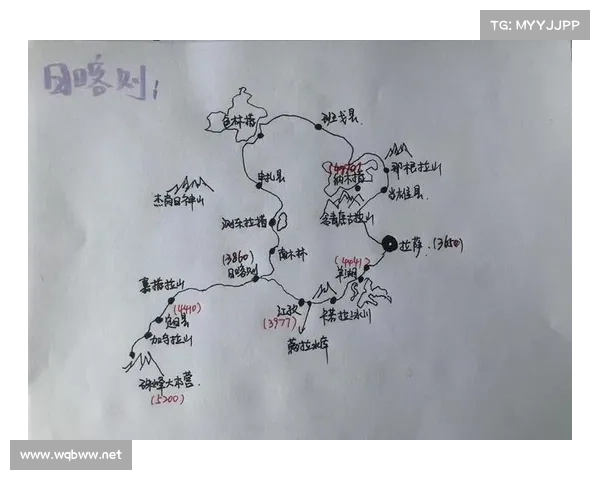 TG: MYYJJPP
日喀则:
色林措
班戈县
(4718)
纳木措
那根拉山
当雄县
念青唐古拉山
申扎县
杰岗日神山
拉萨. (3650)
南木林
(3860)
日喀则
(4441)
羊湖
嘉措拉山
(4410)
定日县
加乌拉山
江孜
(3977)
卡若拉冰川
满拉水库
珠峰大本营.
(5200)
www.wqbww.net